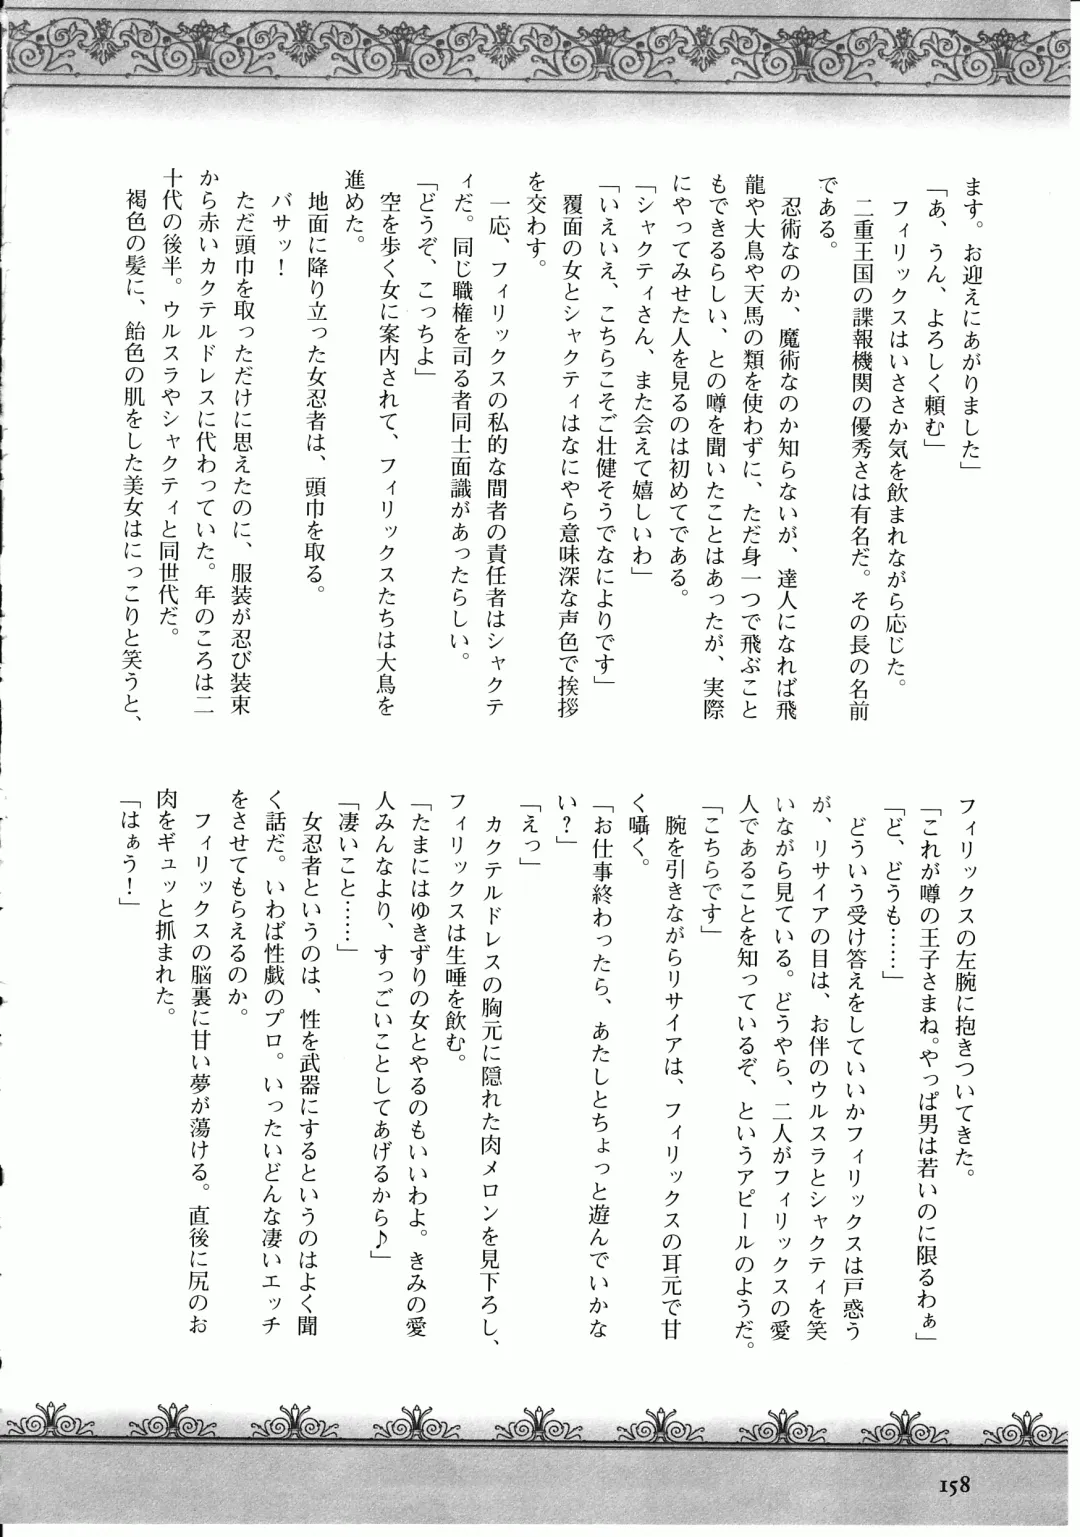 ます。お迎えにあがりました」
「あ、うん、よろしく頼む」
フィリックスはいささか気を飲まれながら応じた。
二重王国の諜報機関の優秀さは有名だ。その長の名前
である。
忍術なのか、魔術なのか知らないが、達人になれば飛
龍や大鳥や天馬の類を使わずに、ただ身一つで飛ぶこと
もできるらしい、との噂を聞いたことはあったが、実際
にやってみせた人を見るのは初めてである。
「シャクティさん、また会えて嬉しいわ」
「いえいえ、こちらこそご壮健そうでなによりです」
覆面の女とシャクティはなにやら意味深な声色で挨拶
を交わす。
一応、フィリックスの私的な間者の責任者はシャクテ
ィだ。同じ職権を司る者同士面識があったらしい。
「どうぞ、こっちよ」
空を歩く女に案内されて、フィリックスたちは大鳥を
進めた。
地面に降り立った女忍者は、頭巾を取る。
バサッ！
ただ頭巾を取っただけに思えたのに、服装が忍び装束
から赤いカクテルドレスに代わっていた。年のころは二
十代の後半。ウルスラやシャクティと同世代だ。
褐色の髪に、飴色の肌をした美女はにっこりと笑うと、
フィリックスの左腕に抱きついてきた。
「これが噂の王子さまね。やっぱ男は若いのに限るわぁ」
「ど、どうも……」
どういう受け答えをしていいかフィリックスは戸惑う
が、リサイアの目は、お伴のウルスラとシャクティを笑
いながら見ている。どうやら、二人がフィリックスの愛
人であることを知っているぞ、というアピールのようだ。
「こちらです」
腕を引きながらリサイアは、フィリックスの耳元で甘
く囁く。
「お仕事終わったら、あたしとちょっと遊んでいかな
い？」
「えっ」
カクテルドレスの胸元に隠れた肉メロンを見下ろし、
フィリックスは生唾を飲む。
「たまにはゆきずりの女とやるのもいいわよ。きみの愛
人みんなより、すっごいことしてあげるから♪」
「凄いこと……」
女忍者というのは、性を武器にするというのはよく聞
く話だ。いわば性戯のプロ。いったいどんな凄いエッチ
をさせてもらえるのか。
フィリックスの脳裏に甘い夢が蕩ける。直後に尻のお
肉をギュッと抓まれた。
「はぁう！」
158